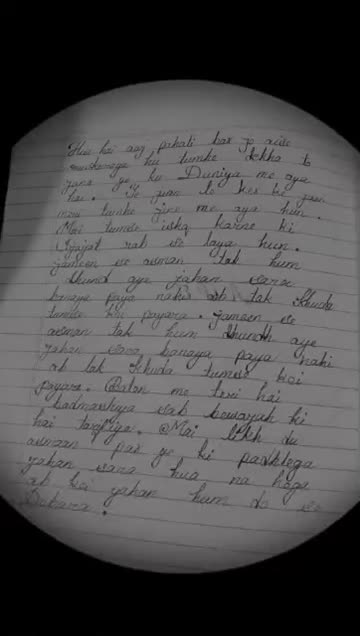 Hua hai aaj pahali bar jo aise
muskuraya hu tumhe dekha to
jana ye ku Duniya me aya
hu. Ye jaan le kes ke jaan
meri tumhe jine me aya hun.
Mai tumse ishq karne ki
Izajat rab se laya hun.
jameen se asman tak hum
dhundh aye jahan sara
banaya paya nahi ab tak khuda
tumse koi payara. jameen se
asman tak hum dhundh aye
jahan sara banaya paya nahi
ab tak khuda tumse koi
payara. Baton me teri hai
badmashiya sab bewayah ki
hai tarifiya. Mai likh du
asmaan par ye ki padhlega
jahan sara hua na hoga
ab koi yahan hum do se
Dobara.